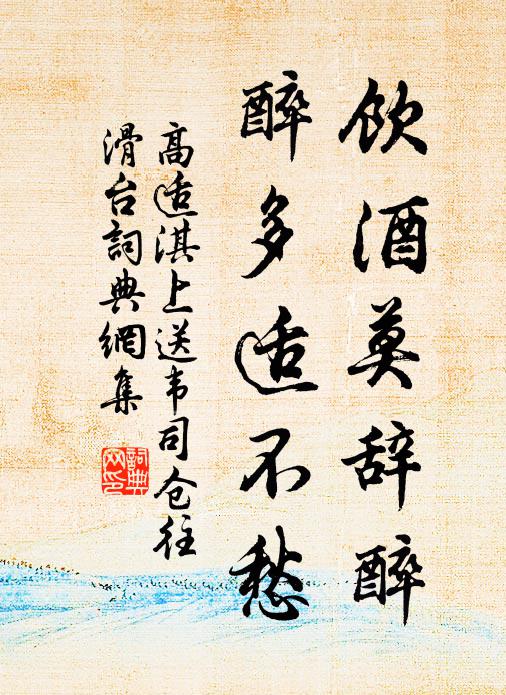 饮酒莫辞醉
醉多适不愁
高适淇上送韦司仓往
滑台词典網集
詞典
网印